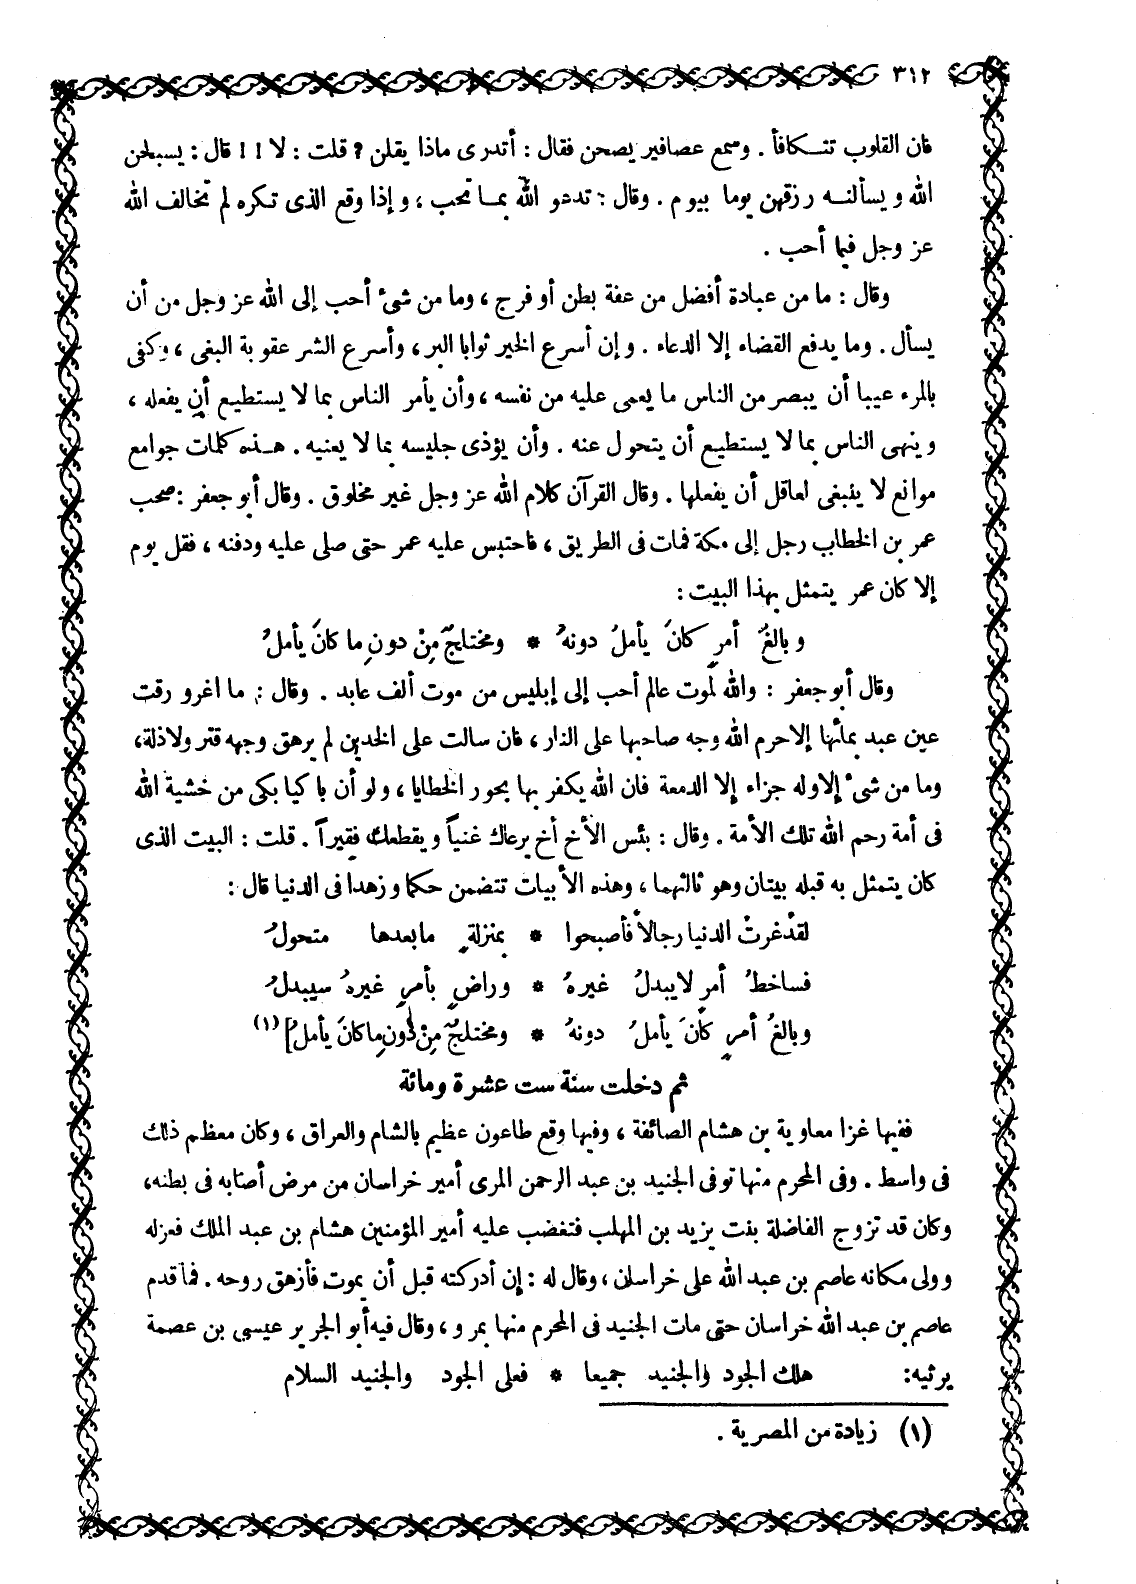 ٣١٢
فان القلوب تتكافأ . وسمع عصافير يصحن فقال : أتدرى ماذا يقلن ? قلت : لا ! ! قال : يسبحن
الله ويسألنه رزقهن يوما بيوم . وقال : تدعو الله بما تحب ، وإذا وقع الذى تكره لم تخالف الله
عز وجل فيما أحب .
وقال : ما من عبادة أفضل من عفة بطن أو فرج ، وما من شىء أحب إلى الله عز وجل من أن
يسأل . وما يدفع القضاء إلا الدعاء . وإن أسرع الخير ثوابا البر ، وأسرع الشر عقوبة البغى ، وكفى
بالمرء عيبا أن يبصر من الناس ما يعمى عليه من نفسه ، وأن يأمر الناس بما لا يستطيع أن يفعله ،
وينهى الناس بما لا يستطيع أن يتحول عنه . وأن يؤذى جليسه بما لا يعنيه . هذه كلمات جوامع
موانع لا ينبغى لعاقل أن يفعلها . وقال القرآن كلام الله عز وجل غير مخلوق . وقال أبو جعفر : صحب
عمر بن الخطاب رجل إلى مكة فمات فى الطريق ، فاحتبس عليه عمر حتى صلى عليه ودفنه ، فقل يوم
إلا كان عمر يتمثل بهذا البيت :
وبالغُ أمرٍ كانَ يأملُ دونهُ * ومختلجٌ مِنْ دونِ ما كانَ يأملُ
وقال أبو جعفر : والله لموت عالم أحب إلى إبليس من موت ألف عابد . وقال : ما اغرورقت
عين عبد بمائها إلا حرم الله وجه صاحبها على النار ، فان سالت على الخدين لم يرهق وجهه قتر ولا ذلة ،
وما من شىء إلا وله جزاء إلا الدمعة فان الله يكفر بها بحور الخطايا ، ولو أن باكيا بكى من خشية الله
فى أمة رحم الله تلك الأمة . وقال : بئس الأخ أخ يرعاك غنياً ويقطعك فقيراً . قلت : البيت الذى
كان يتمثل به قبله بيتان وهو ثالثهما ، وهذه الأبيات تتضمن حكما وزهدا فى الدنيا قال :
لقدْ غرتْ الدنيا رجالاً فأصبحوا * بمنزلةٍ مابعدها متحولُ
فساخطُ أمرٍ لايبدلُ غيرهُ * وراضٍ بأمرٍ غيرهُ سيبدلُ
وبالغُ أمرٍ كانَ يأملُ دونهُ * ومختلجٌ مِنْ دونِ ماكانَ يأملُ] (١)
ثم دخلت سنة ست عشرة ومائة
ففيها غزا معاوية بن هشام الصائفة ، وفيها وقع طاعون عظيم بالشام والعراق ، وكان معظم ذلك
فى واسط . وفى المحرم منها توفى الجنيد بن عبد الرحمن المرى أمير خراسان من مرض أصابه فى بطنه ،
وكان قد تزوج الفاضلة بنت يزيد بن المهلب فتغضب عليه أمير المؤمنين هشام بن عبد الملك فعزله
وولى مكانه عاصم بن عبد الله على خراسان ، وقال له : إن أدركته قبل أن يموت فأزهق روحه . فما قدم
عاصم بن عبد الله خراسان حتى مات الجنيد فى المحرم منها بمرو ، وقال فيه أبو الجرير عيسى بن عصمة
يرثيه : هلك الجود والجنيد جميعا * فعلى الجود والجنيد السلام
(١) زيادة من المصرية .